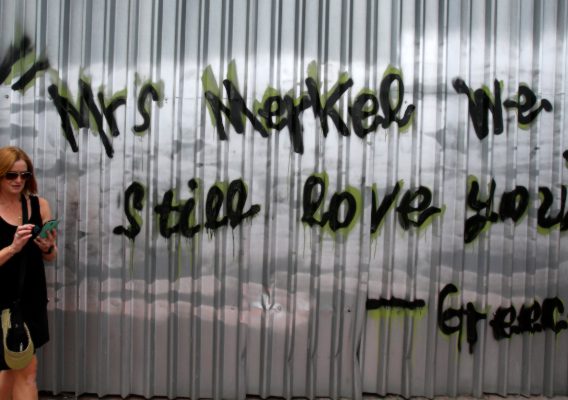 "Mrs Merkel We
Still love you
— Greec